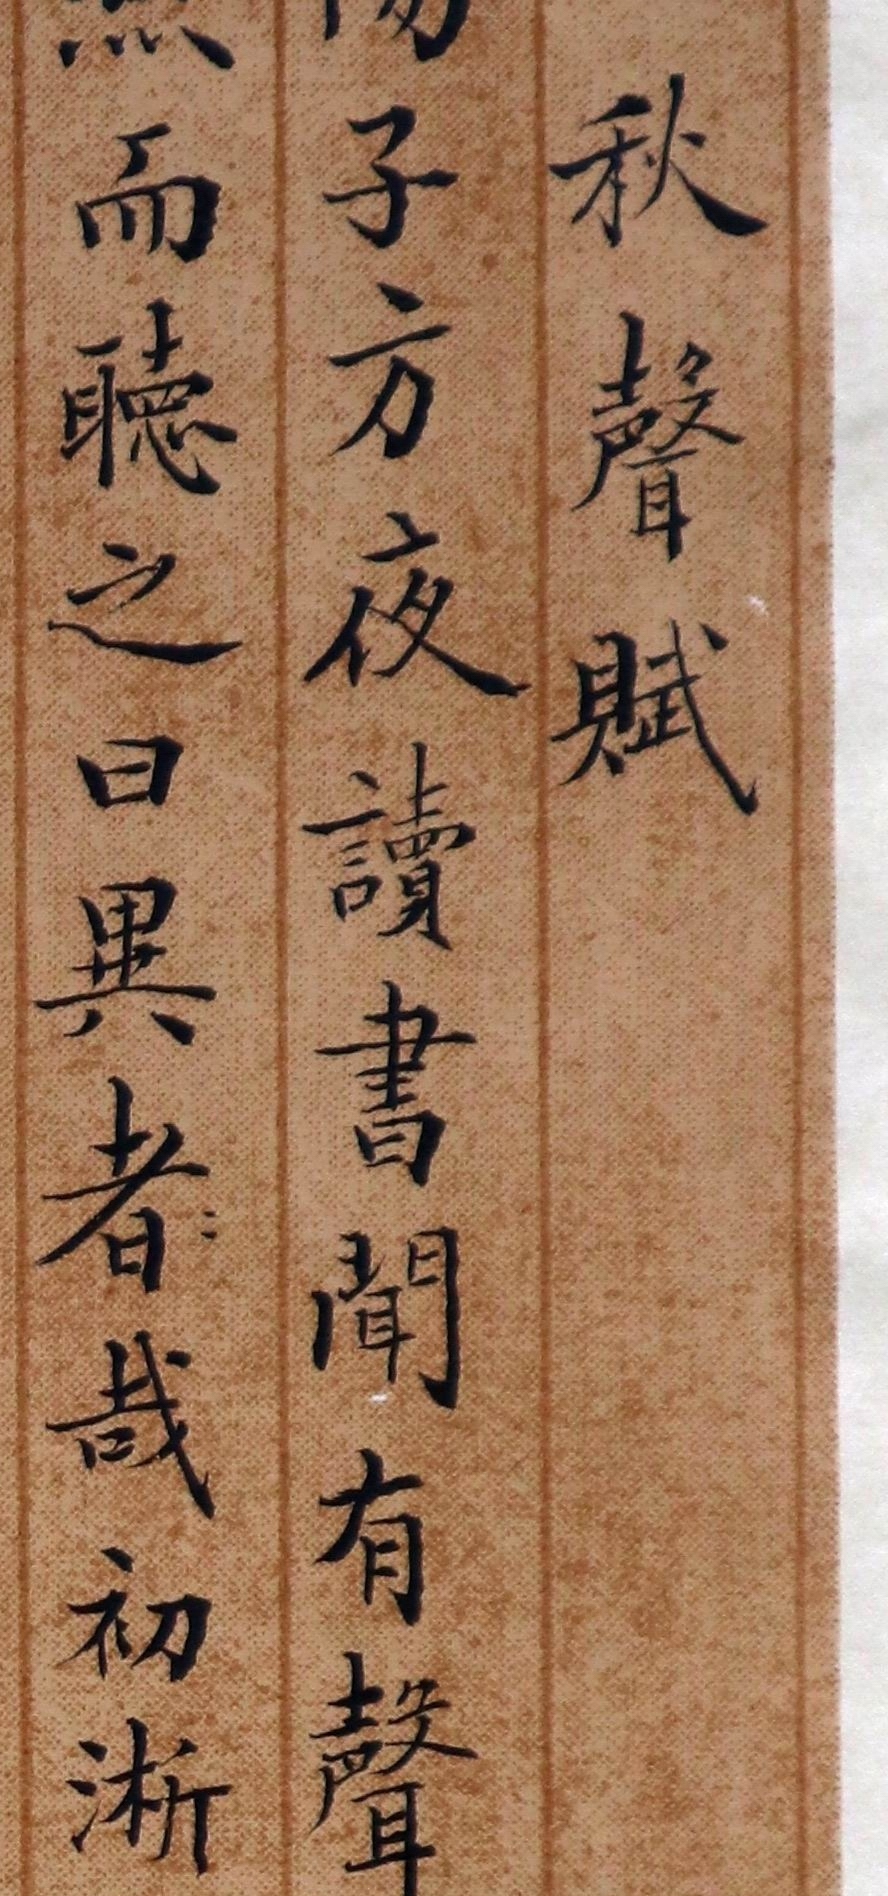 秋聲賦
子方夜讀書聞有聲
而聽之曰異者哉初淅